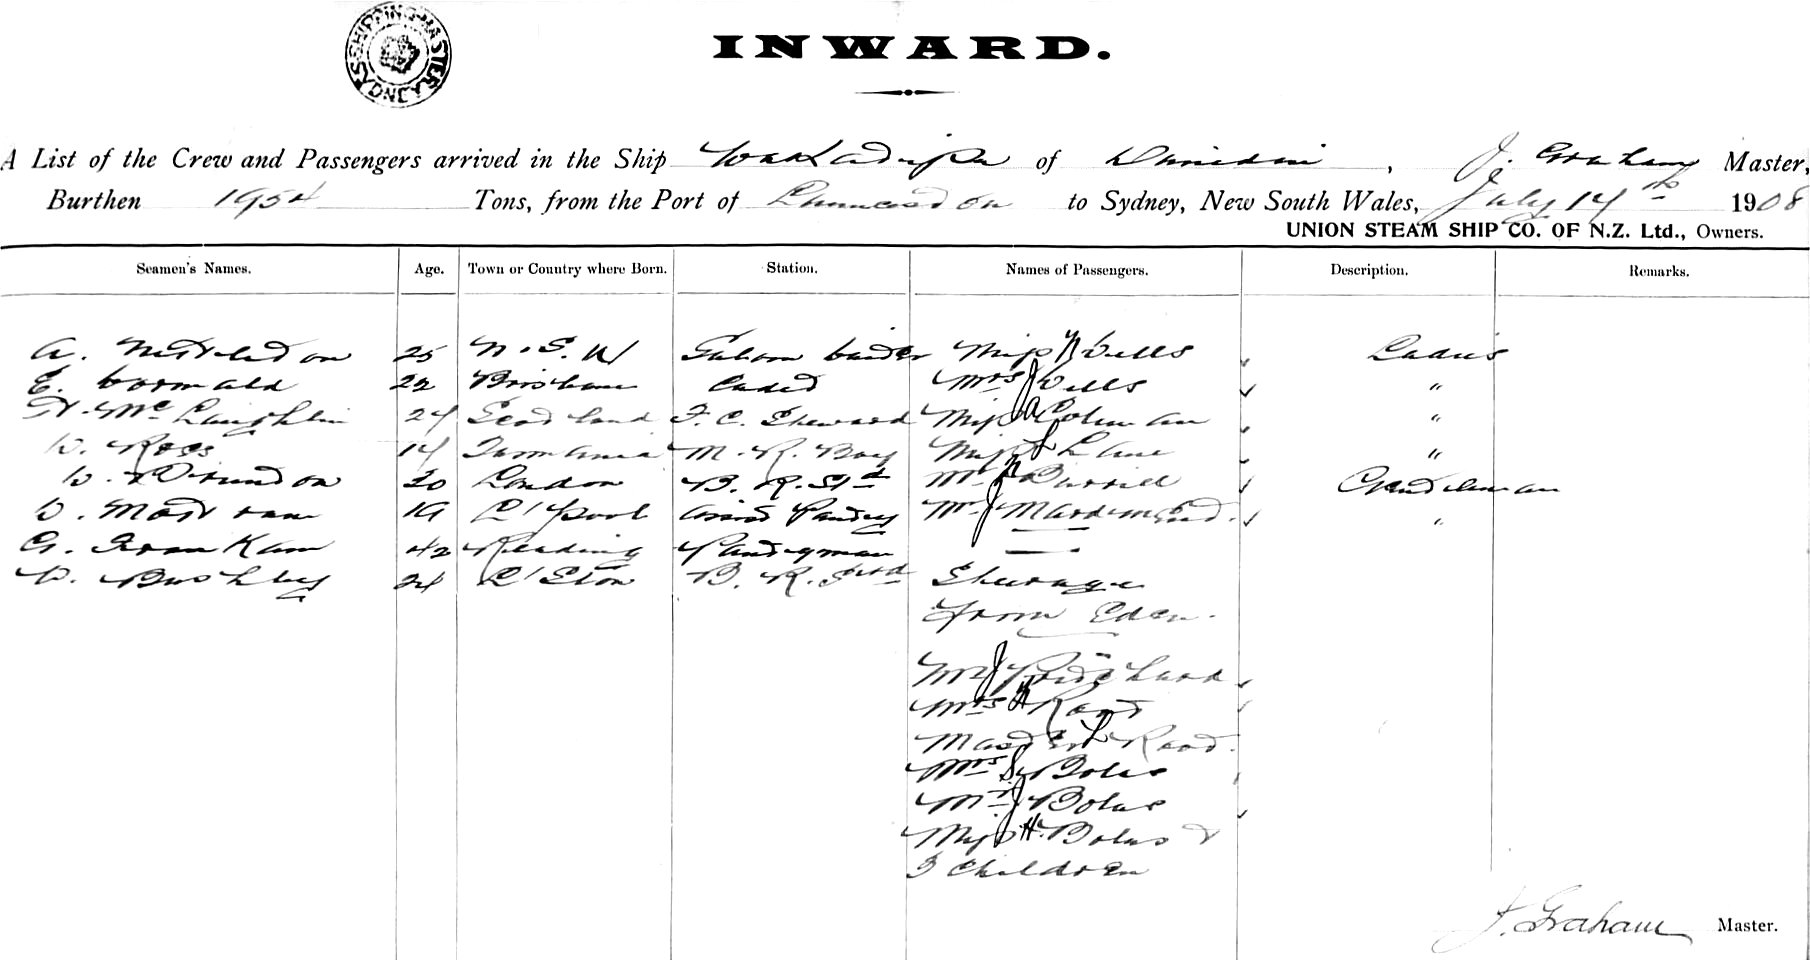 SHIPPING MASTER SYDNEY
INWARD.
A List of the Crew and Passengers arrived in the Ship Wakatipu of Dunedin, J. Graham Master,
Burthen 1954 Tons, from the Port of Launceston to Sydney, New South Wales, July 14th 1908
UNION STEAM SHIP CO. OF N.Z. Ltd., Owners.
Seamen's Names. Age. Town or Country where Born. Station. Names of Passengers. Description. Remarks.
A. Nettleton 25 N.S.W Saloon Waiter Miss Wells Ladies
E. Wormald 22 Brisbane Cadet Mrs J Wells "
H. McLaughlin 24 Scotland F. C. Steward Miss A Coleman "
W. Ross 14 Tasmania M. R. Boy Miss L Lane "
W. 20 London B. R. Std Mr Burrill Gentleman
D. 19 L'pool Assist Pantry Mr J "
G. 42 Reading Pantryman
W. Bushby 24 L'ston B. R. Strd Steerage
from Eden.
Mr J Pritchard
Mrs H Root
Master L Root.
Mrs S Bolus
Mr J Bolus
Miss H. Bolus &
3 Children
J. Graham Master.